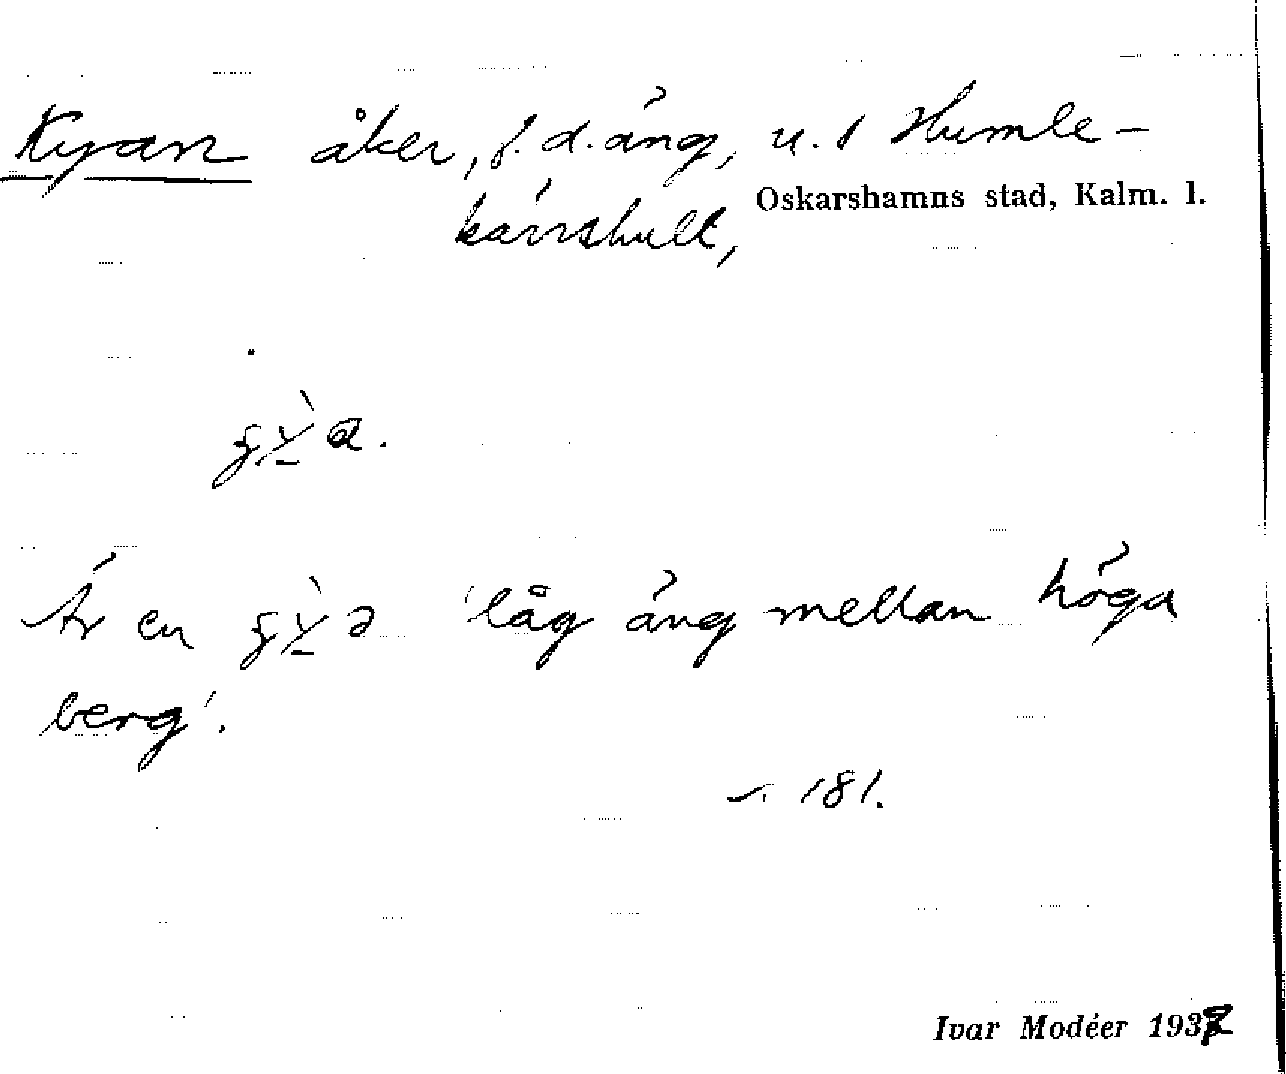 Kyan åker, f.d. äng, u. 1 Humle-
kärrshult,
Oskarshamns stad, Kalm. l.
Är en låg äng mellan höga
berg'.
181.
Ivar Modéer 193